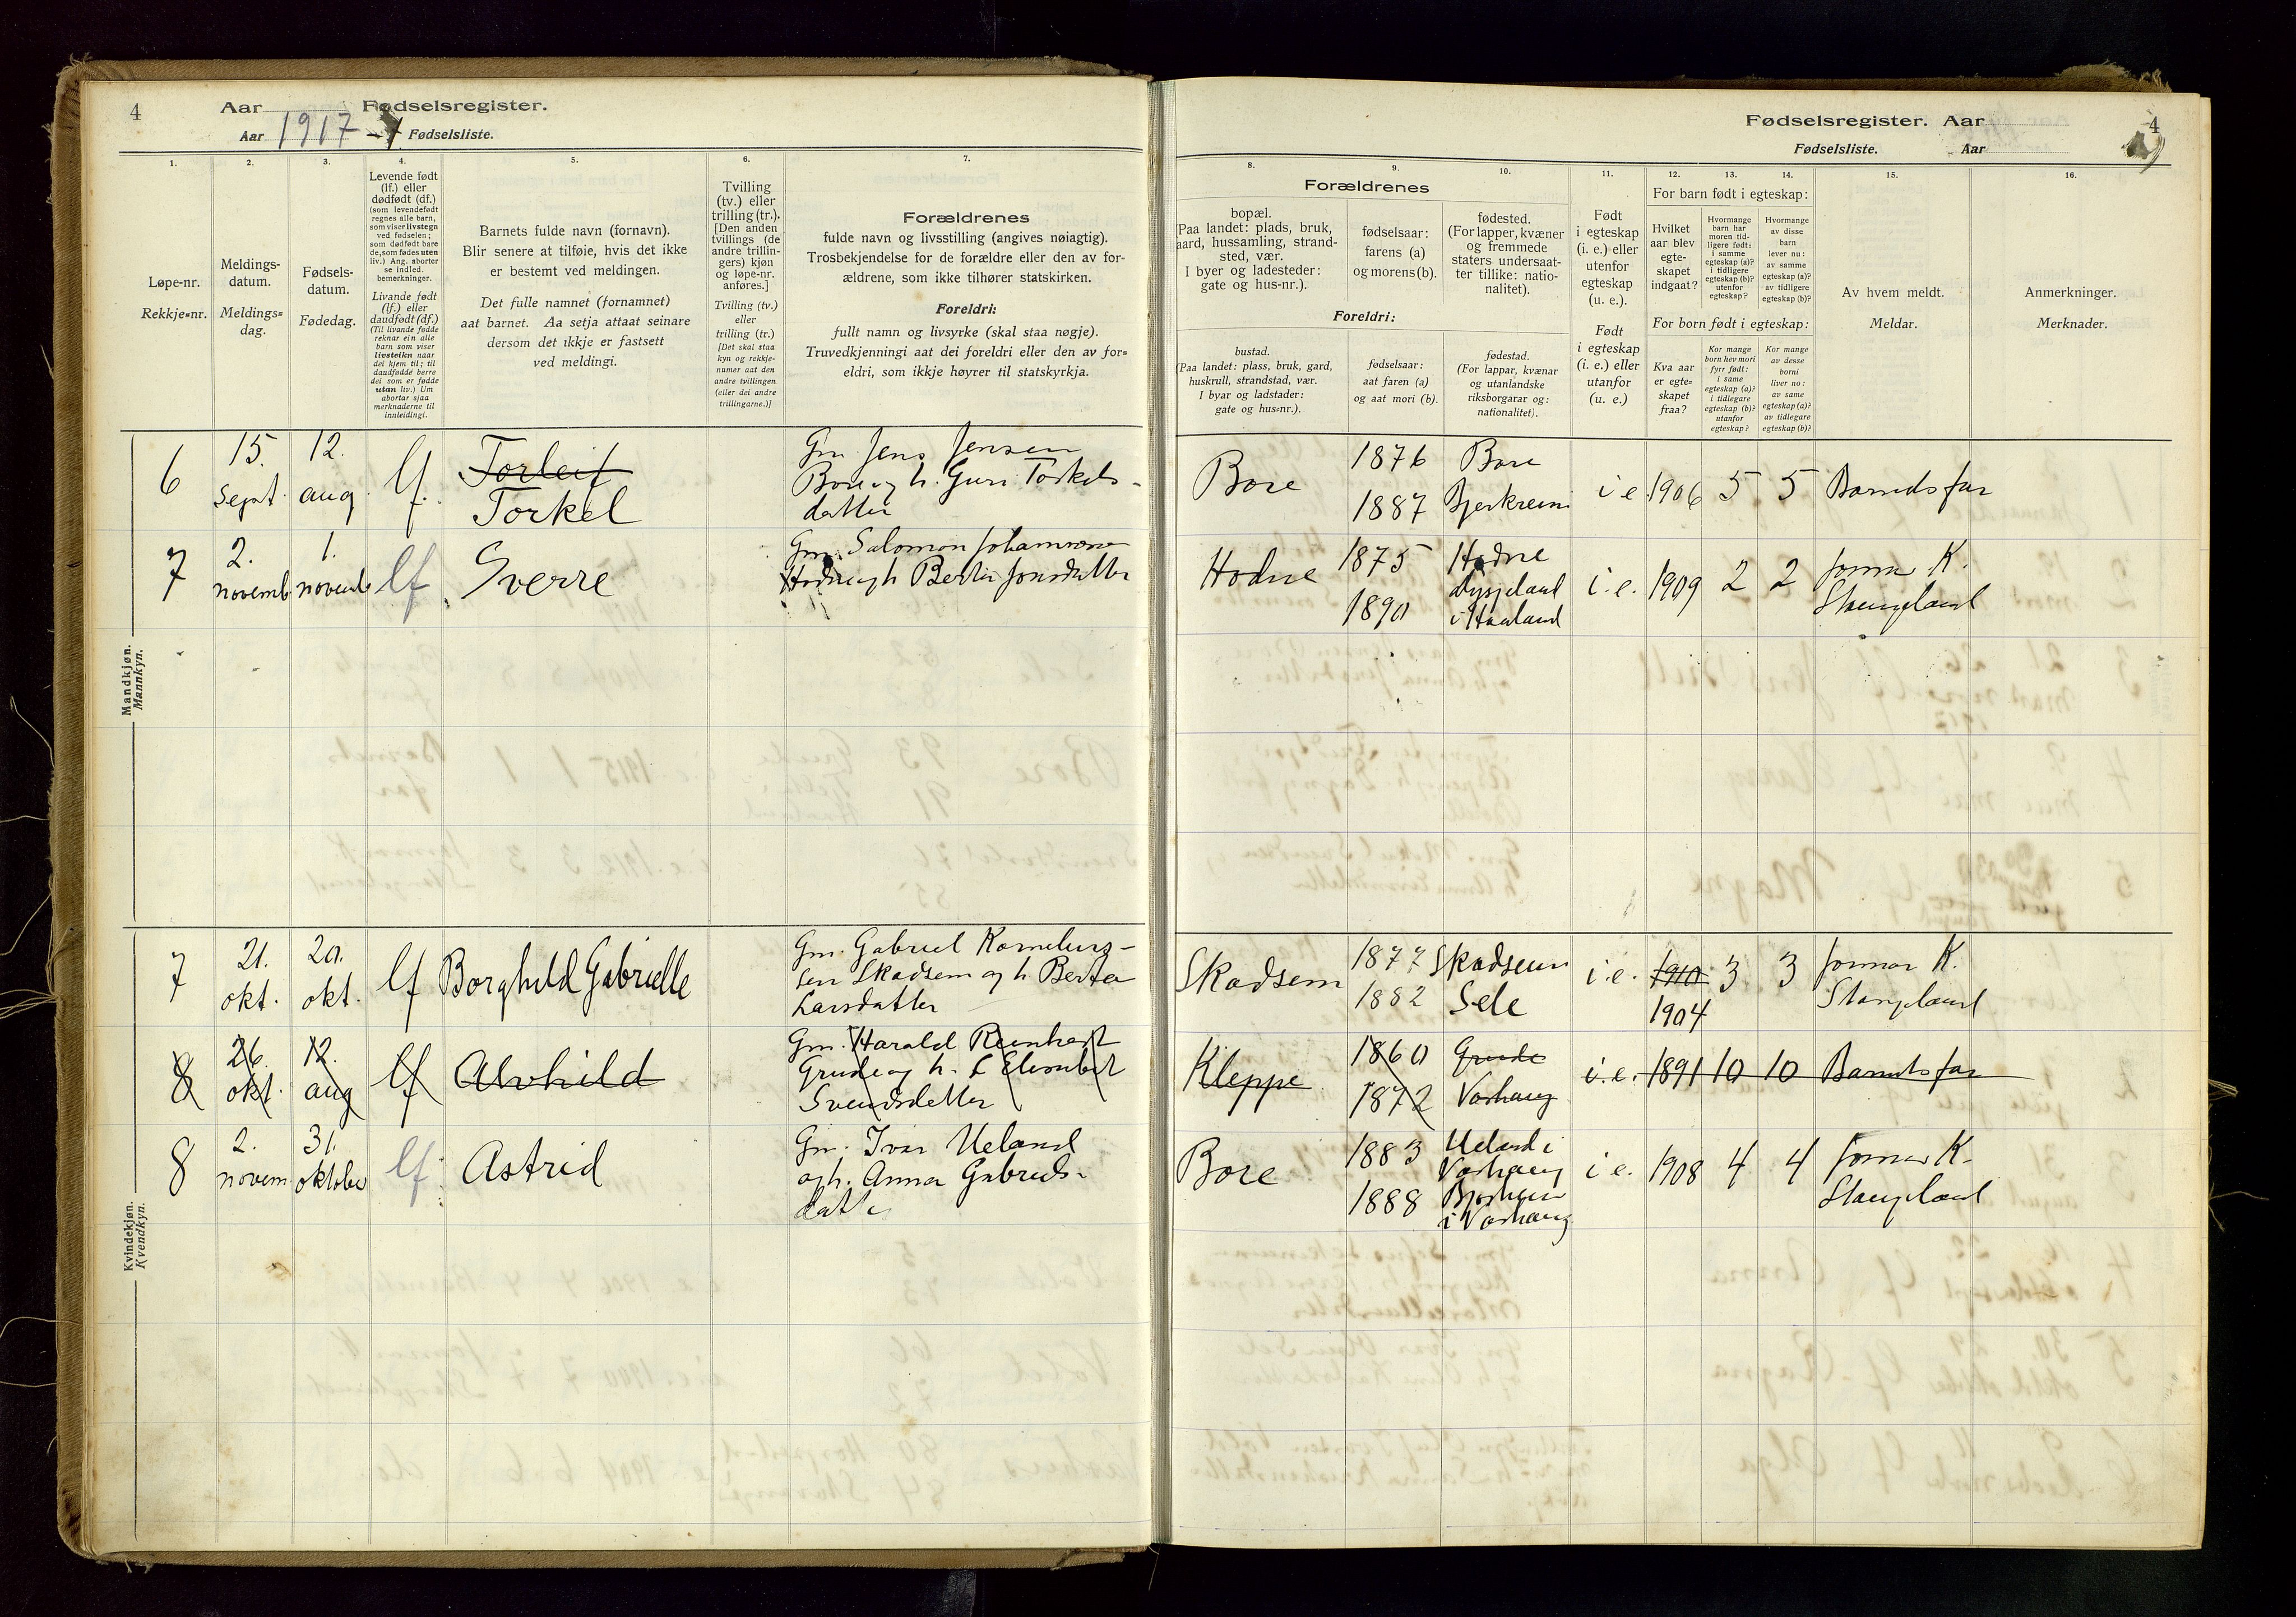 4
Aar
Fødselsregister.
Aar 1917
Fødselsliste.
1.
2.
3.
4.
5.
6.
7.
Løpe-nr.
Rekkje=nr.
Meldings-
datum.
Meldings=
dag.
Fødsels-
datum.
Fødedag.
Levende født
(lf.) eller
dødfødt (df.)
(som levendefødt
regnes alle barn,
som viser livstegn
ved fødselen;
som dødfødt bare
de, som fødes uten
liv.) Ang. aborter
se indled.
bemerkninger.
Livande født
(lf.) eller
daudfødt (df.)
(Til livande fødde
reknar ein alle
barn som viser
livsteikn naar
dei kjem til; til
daudfødde berre
dei som er fødde
utan liv.) Um
abortar sjaa
merknaderne til
innleidingi.
Barnets fulde navn (fornavn).
Blir senere at tilføie, hvis det ikke
er bestemt ved meldingen.
Det fulle namnet (fornamnet)
aat barnet. Aa setja attaat seinare
dersom det ikkje er fastsett
ved meldingi.
Tvilling
(tv.) eller
trilling (tr.).
[Den anden
tvillings (de
andre trillin-
gers) kjøn
og løpe-nr.
anføres.]
Tvilling (tv.)
eller
trilling (tr.)
[Det skal staa
kyn og rekkje-
numer aat den
andre tvillingen
(eller dei andre
trillingarne.)]
Forældrenes
fulde navn og livsstilling (angives nøiagtig).
Trosbekjendelse for de forældre eller den av for-
ældrene, som ikke tilhører statskirken.
Foreldri:
fullt namn og livsyrke (skal staa nøgje).
Truvedkjenningi aat dei foreldri eller den av for=
eldri, som ikkje høyrer til statskyrkja.
Fødselsregister. Aar
4
Fødselsliste.
Aar
8.
9.
10.
11.
12.
13.
14.
15.
16.
Forældrenes
bopæl.
(Paa landet: plads, bruk,
gaard, hussamling, strand-
sted, vær.
I byer og ladesteder:
gate og hus-nr.).
fødselsaar:
farens (a)
og morens (b).
fødested.
(For lapper, kvæner
og fremmede
staters undersaat-
ter tillike: natio-
nalitet).
Foreldri:
bustad.
(Paa landet: plass, bruk, gard,
huskrull, strandstad, vær.
I byar og ladstader:
gate og hus=nr.).
fødselsaar:
aat faren (a)
og aat mori (b).
fødestad.
(For lappar, kvænar
og utanlandske
riksborgarar og:
nationalitet).
Født
i egteskap
(i. e.) eller
utenfor
egteskap
(u. e.).
Født
i egteskap
(i. e.) eller
utanfor
(u. e.)
For barn født i egteskap:
Hvilket
aar blev
egte-
skapet
indgaat?
Hvormange
barn har
moren tid-
ligere født:
i samme
egteskap (a)?
i tidligere
egteskap (b)?
utenfor
egteskap?
Hvormange
av disse
barn
lever nu:
av samme
egteskap (a)?
av tidligere
egteskap (b)?
For born født i egteskap:
Kva aar
er egte=
skapet
fraa?
Kor mange
born hev mori
fyrr født:
i same
egteskap (a)?
i tidlegare
egteskap (b)?
utanfor
egteskap?
Kor mange
av desse
borni
liver no:
av same
egteskap (a)?
av tidlegare
egteskap (b)?
Av hvem meldt.
Meldar.
Anmerkninger.
Merknader.
Mandkjøn.
Mannkyn.
6
15.
Sept.
12.
aug
lf.
Torleif
Torkel
Gm. Jens Jensen
Bore og h. Guri Torkels-
datter
Bore
1876
1887
Bore
Bjerkreim
i e
1906
5
5
Barnets far
7
2.
novemb
1.
novemb
lf
Sverre
Gm. Salomon Johannesen
Hodne og h Berta Jonsdatter
Hodne
1875
1890
Hodne
i Haaland
i. e.
1909
2
2
Jormor K.
Stangeland
Kvindekjøn.
Kvendkyn.
7
21.
okt.
20.
okt.
lf
Borghild Gabrielle
Gm. Gabriel Kornelius-
sen Skadsem og h. Berta
Larsdatter
Skadsem
1877
1882
Skadsem
Sele
i e.
1910
1904
3
3
Jormor K.
Stangeland
8
26.
okt.
12.
aug
lf
Alvhild
Gm. Harald Reinhart
Grude og h. Elisabet
Svendsdatter
Kleppe
1860
1872
Grude
Varhaug
i. e.
1891
10
10
Barnets far
8
2.
novem
31.
oktober
lf.
Astrid
Gm. Ivar Ueland
og h. Anna Gabriels-
datter
Bore
1883
1888
Ueland i
Varhaug
i Varhaug
i e.
1908
4
4
Jormor K.
Stangeland